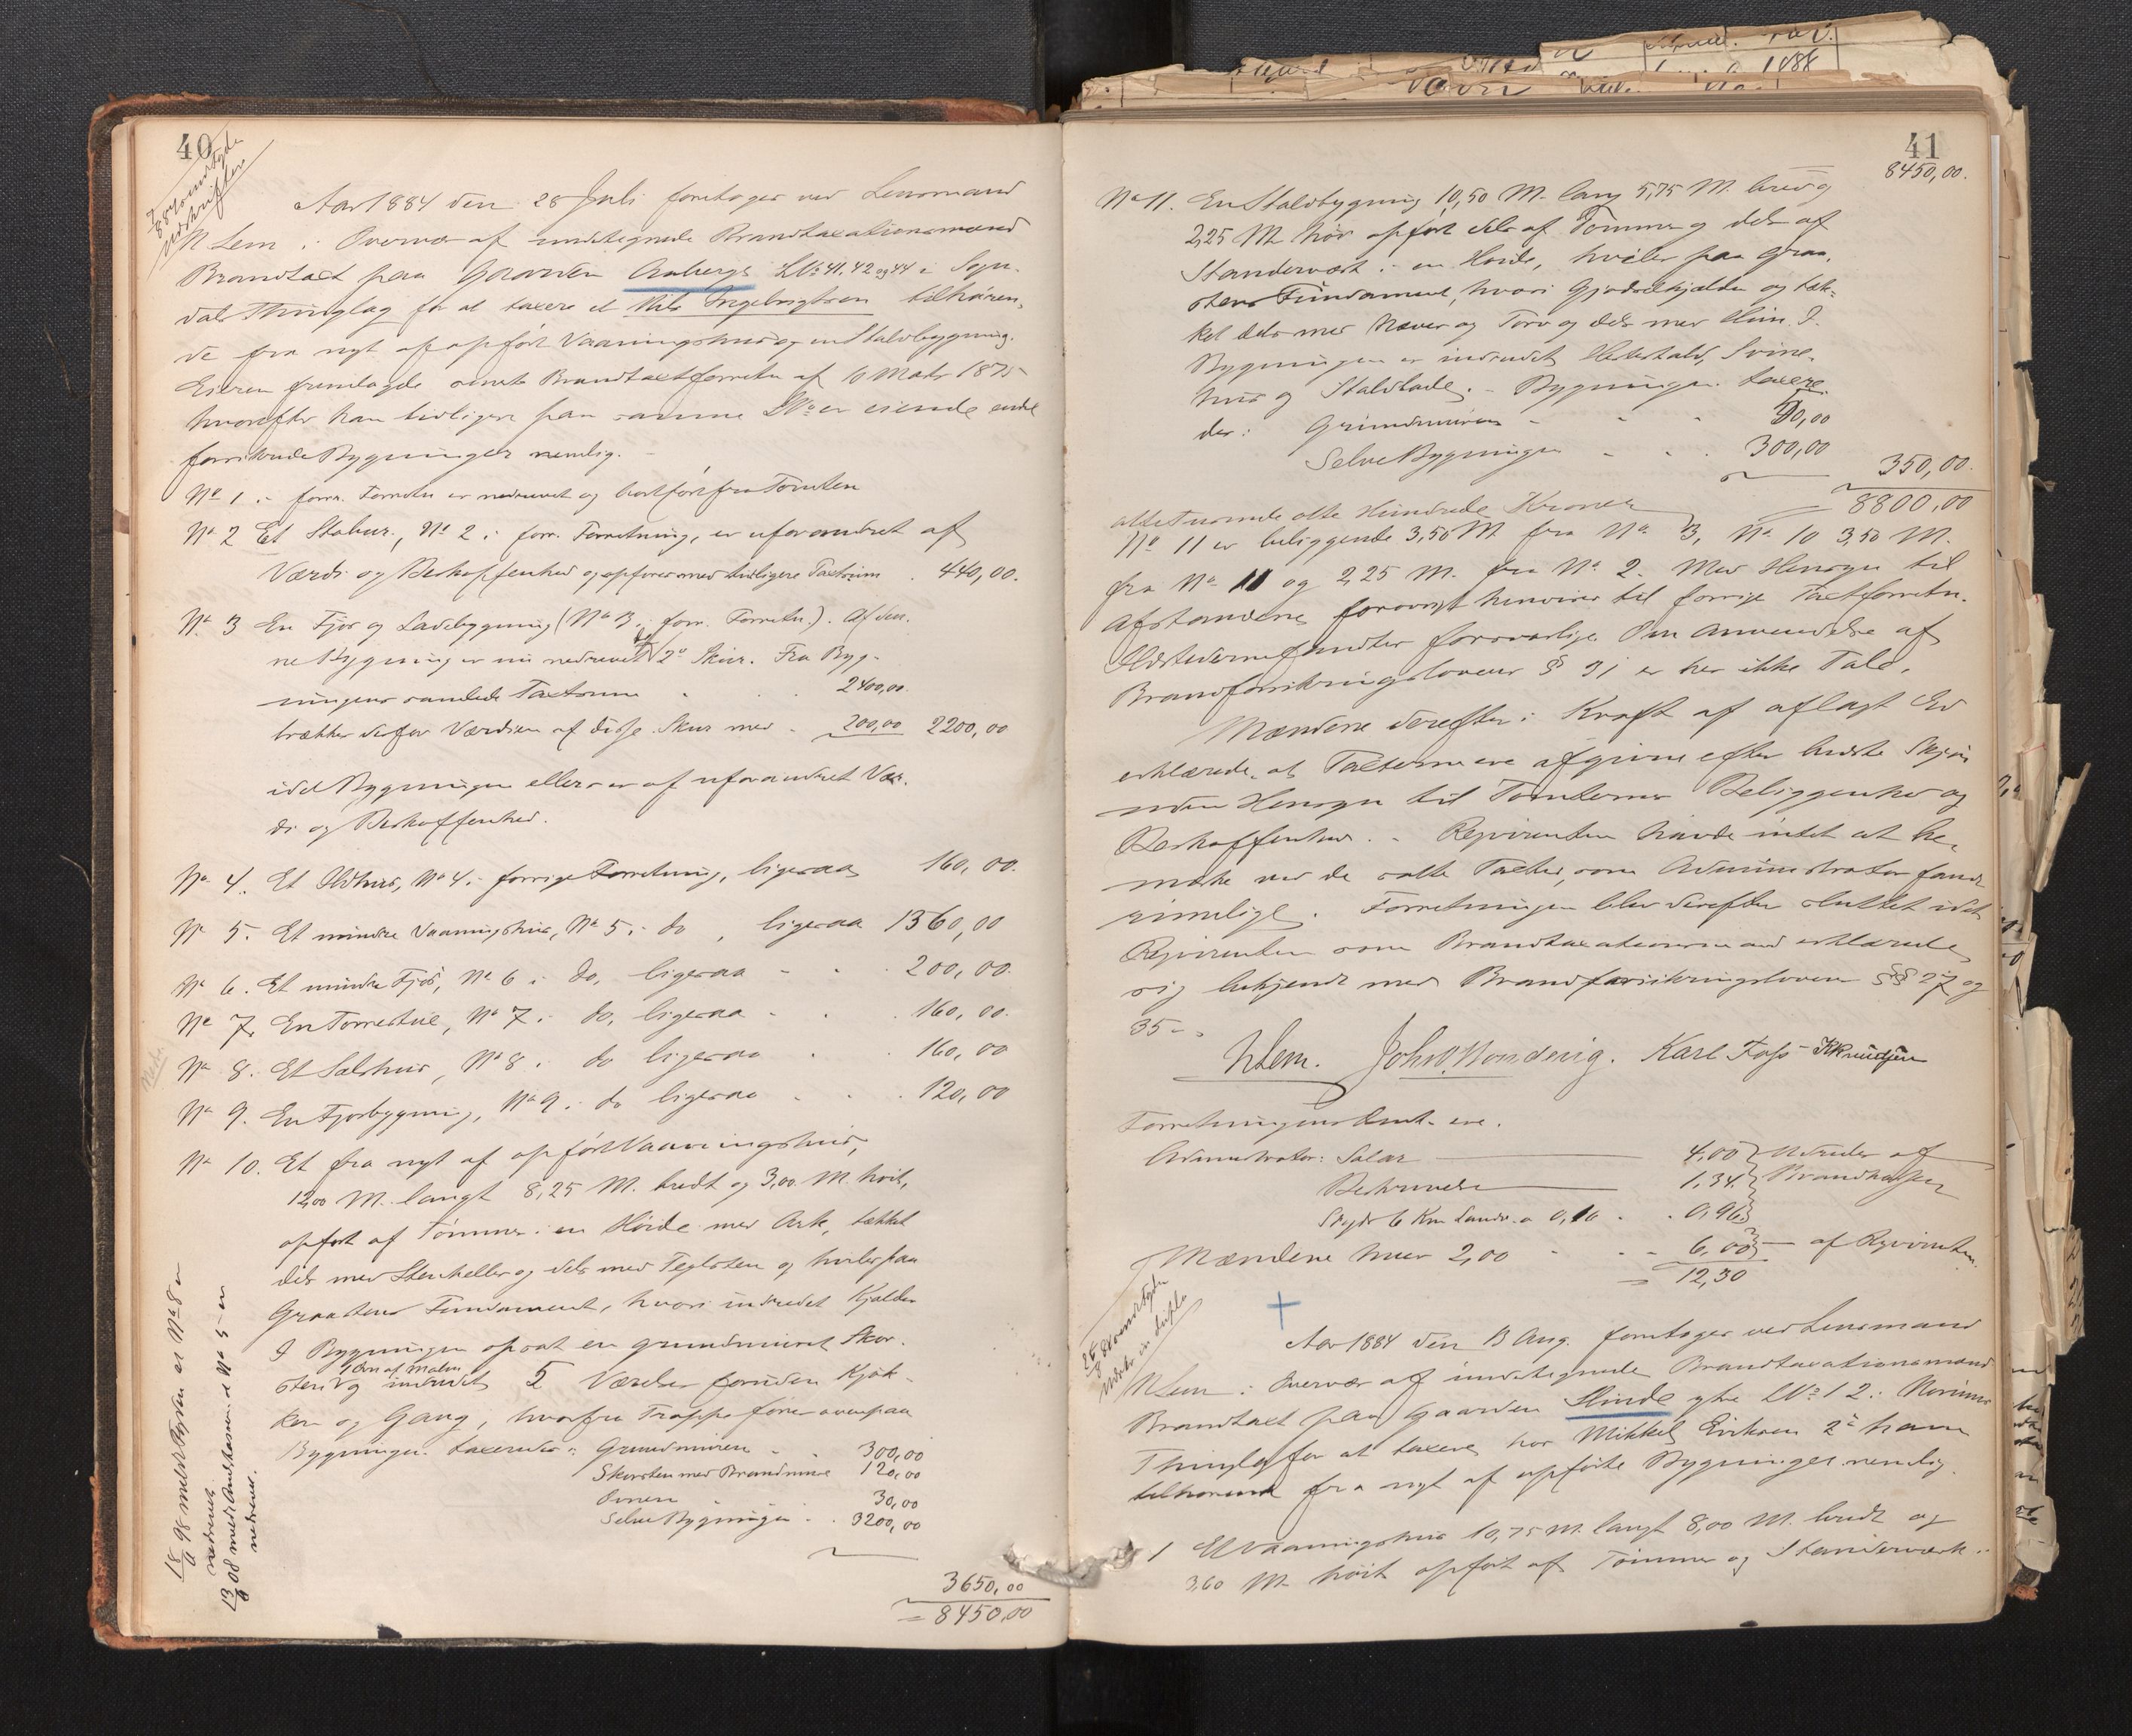 40
7/8 84 Udskrift
Aar 1884 den 28 Juli foretoges ved Lensmand
N Lem i Overvær af undertegnede Brandtaxationsmænd
Brandtaxt paa Gaarden Aaberge LNo 41, 42 og 44 i Sogn-
dals Thinglag for at taxere et Nils Ingebrigtsen tilhören-
de fra nyt af opfört Vaaningshus og en Staldbygning.
Eieren fremlagde sidste Brandtaxtforretn. af 10 Mats 1875
hvorefter han tidligere paa samme LNo er eiende endel
forsikrede Bygninger nemlig.
No 1 i forr. Forretn er nedrevet og bortfört fra Tomten
No 2 Et Stabur, No 2 i forr. Forretning, er uforandret af
Værdi og Beskaffenhed og opföres med tidligere Taxtsum . 440,00.
No 3 En Fjös og Ladebygning (No 3 i forr. Forretn.). Af den-
ne Bygning er nu nedrevet 2de Skur. Fra Byg-
ningens samlede Taxtsum . . 2400,00.
trækkes derfor Værdien af disse Skur med . 200,00 2200,00
idet Bygningen ellers er af uforandret Vær-
di og Beskaffenhed.
No 4. Et Ildhus, No 4 i forrige Forretning, ligesaa 160,00.
No 5. Et mindre Vaaningshus, No 5 i do , ligesaa 1360,00
No 6. Et mindre Fjös, No 6 i do, ligesaa - . . 200,00.
No 7. En Torrestue, No 7 i do, ligesaa - . . 160,00.
No 8. Et Sælshus, No 8 i do ligesaa . . 160,00
No 9. En Fjösbygning, No 9 i do ligesaa . . . 120,00
No 10. Et fra nyt af opfört Vaaningshus,
12,00 M. langt 8,25 M. bredt og 3,00 M. höit,
opfört af Tömmer i en Höide med Ark, tækket
dels med Stenheller og dels med Teglsten og hviler paa
Graastens Fundament, hvori indredet Kjelder
I Bygningen opsat en grundmuret Skor-
sten 1 Ovn af Malm og indredet 5 Værelser foruden Kjök-
ken og Gang, hvorfra Trappe förer ovenpaa
Bygningen taxeredes: Grundmuren - . 300,00
Skorsten med Brandmure 120,00
Ovnen 30,00
Selve Bygningen . . 3200,00
3650,00
= 8450,00
nedrevet
nedrevne.
41
8450,00.
No 11. En Staldbygning 10,50 M. lang 5,75 M. bred og
2,25 M höi opfört dels af Tömmer og dels af
Standerværk i en Höide, hviler paa Graa-
stens Fundament, hvori Gjödselkjelder og tæk-
ket dels med Næver og Torv og dels med Him. I
Bygningen er indredet Hestestald, Svine-
hus og Staldlade. - Bygningen taxere-
des: Grundmuren - - - 50,00
Selve Bygningen - - . 300,00
350,00.
8800,00
ottetusinde otte Hundrede Kroner
No 11 er beliggende 3,50 M fra No 3, No 10 3,50 M.
fra No 11 og 2,25 M. fra No 2. Med Hensyn til
Afstandene forövrigt henvises til forrige Taxtforretn.
Ildstederne fandtes forsvarlige. Om Anvendelse af
Brandforsikringslovens § 31 er her ikke Tale.
Mændene derefter i Kraft af aflagt Ed
erklærede, at Taxterne ere afgivne efter bedste Skjön
uden Hensyn til Tomternes Beliggenhed og
Beskaffenhed. - Reqvirenten havde intet at be-
mærke ved de satte Taxter, som Administrator fandt
rimelige. Forretningen blev derefter sluttet idet
Reqvirenten som Brandtaxationsmænd erklærede
sig bekjendt med Brandforsikringslovens §§ 27 og
35 -.
NLem. Karl Foss
Forretningens Omk. ere.
Administrator: Salær 4,00 Udredes af
Beskrivelse 1,34. Brandkassen
Skyds 6 Km Landv. a 0,16 . . 0,96
Mændene hver 2,00 - . - 6,00 - af Reqvirenten.
= 12,30
Aar 1884 den 13 Aug. foretoges ved Lensmand
N Lem i Overvær af undertegnede Brandtaxationsmænd
Brandtaxt paa Gaarden Slinde ytre LNo 12 i Norums
Thinglag for at taxere hos Mikkel Eriksen 2de ham
tilhörende fra nyt af opförte Bygninger nemlig
1 Et Vaaningshus 10,75 M. langt 8,00 M. bredt og
3,60 M höit opfört af Tömmer og Standerværk i